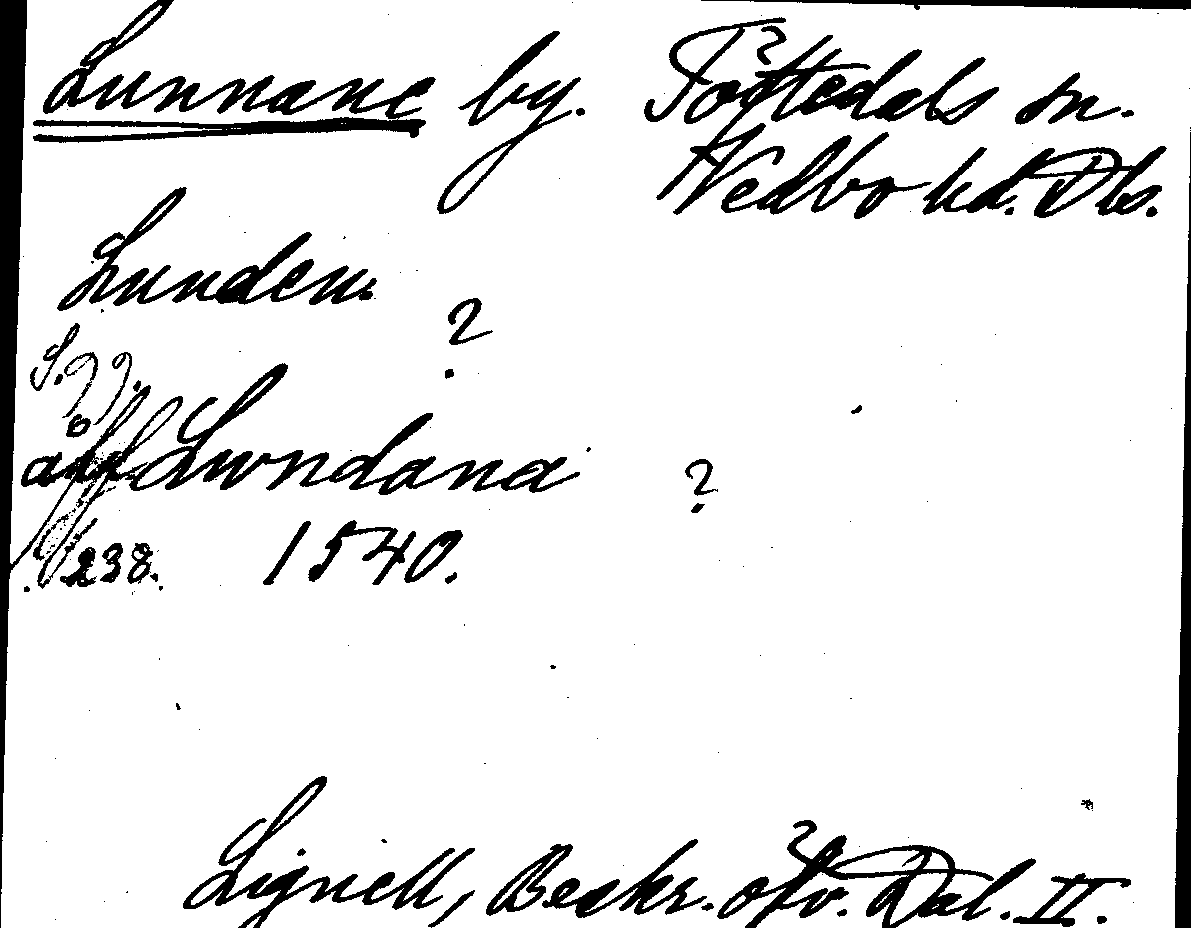 Lunnane by. Töftedals sn.
Vedbo hd. Dls.
Lunden.
?
S. 77.
åff Lwndana ?
238. 1540.
Lignell, Beskr. öfv. Dal. II.